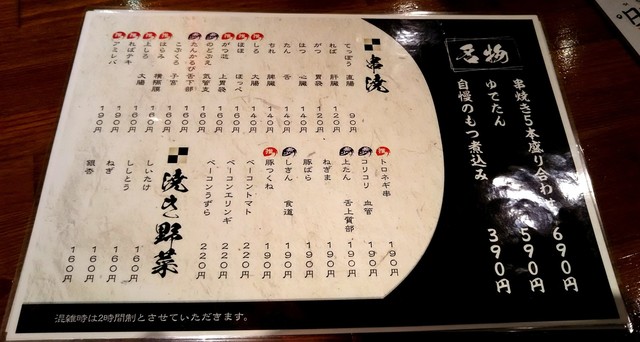 名物
串焼き5本盛り合わ 690円
ゆでたん 590円
自慢のもつ煮込み 390円
串焼
てっぽう 直腸 90円
れば 肝臓 120円
がつ 胃袋
はつ 心臓 140円
たん 舌 140円
ちれ 脾臓 140円
しろ 大腸 140円
ほほ ほっぺ 140円
がつ芯 上胃袋 160円
のどぶえ 気管支 160円
たんかるび 舌下部 160円
こぶくろ 子宮 160円
はらみ 横隔膜 160円
上しろ 大腸 160円
ればテキ 190円
アミレバ 190円
トロネギ串 190円
コリコリ 血管 190円
上たん 舌上質部 190円
ねぎま 190円
豚ばら 190円
しきん 食道 190円
豚つくね 190円
ベーコントマト 220円
ベーコンエリンギ 220円
ベーコンうずら 220円
焼き野菜
しいたけ 160円
ししとう 160円
ねぎ 160円
銀杏 160円
混雑時は2時間制とさせていただきます。